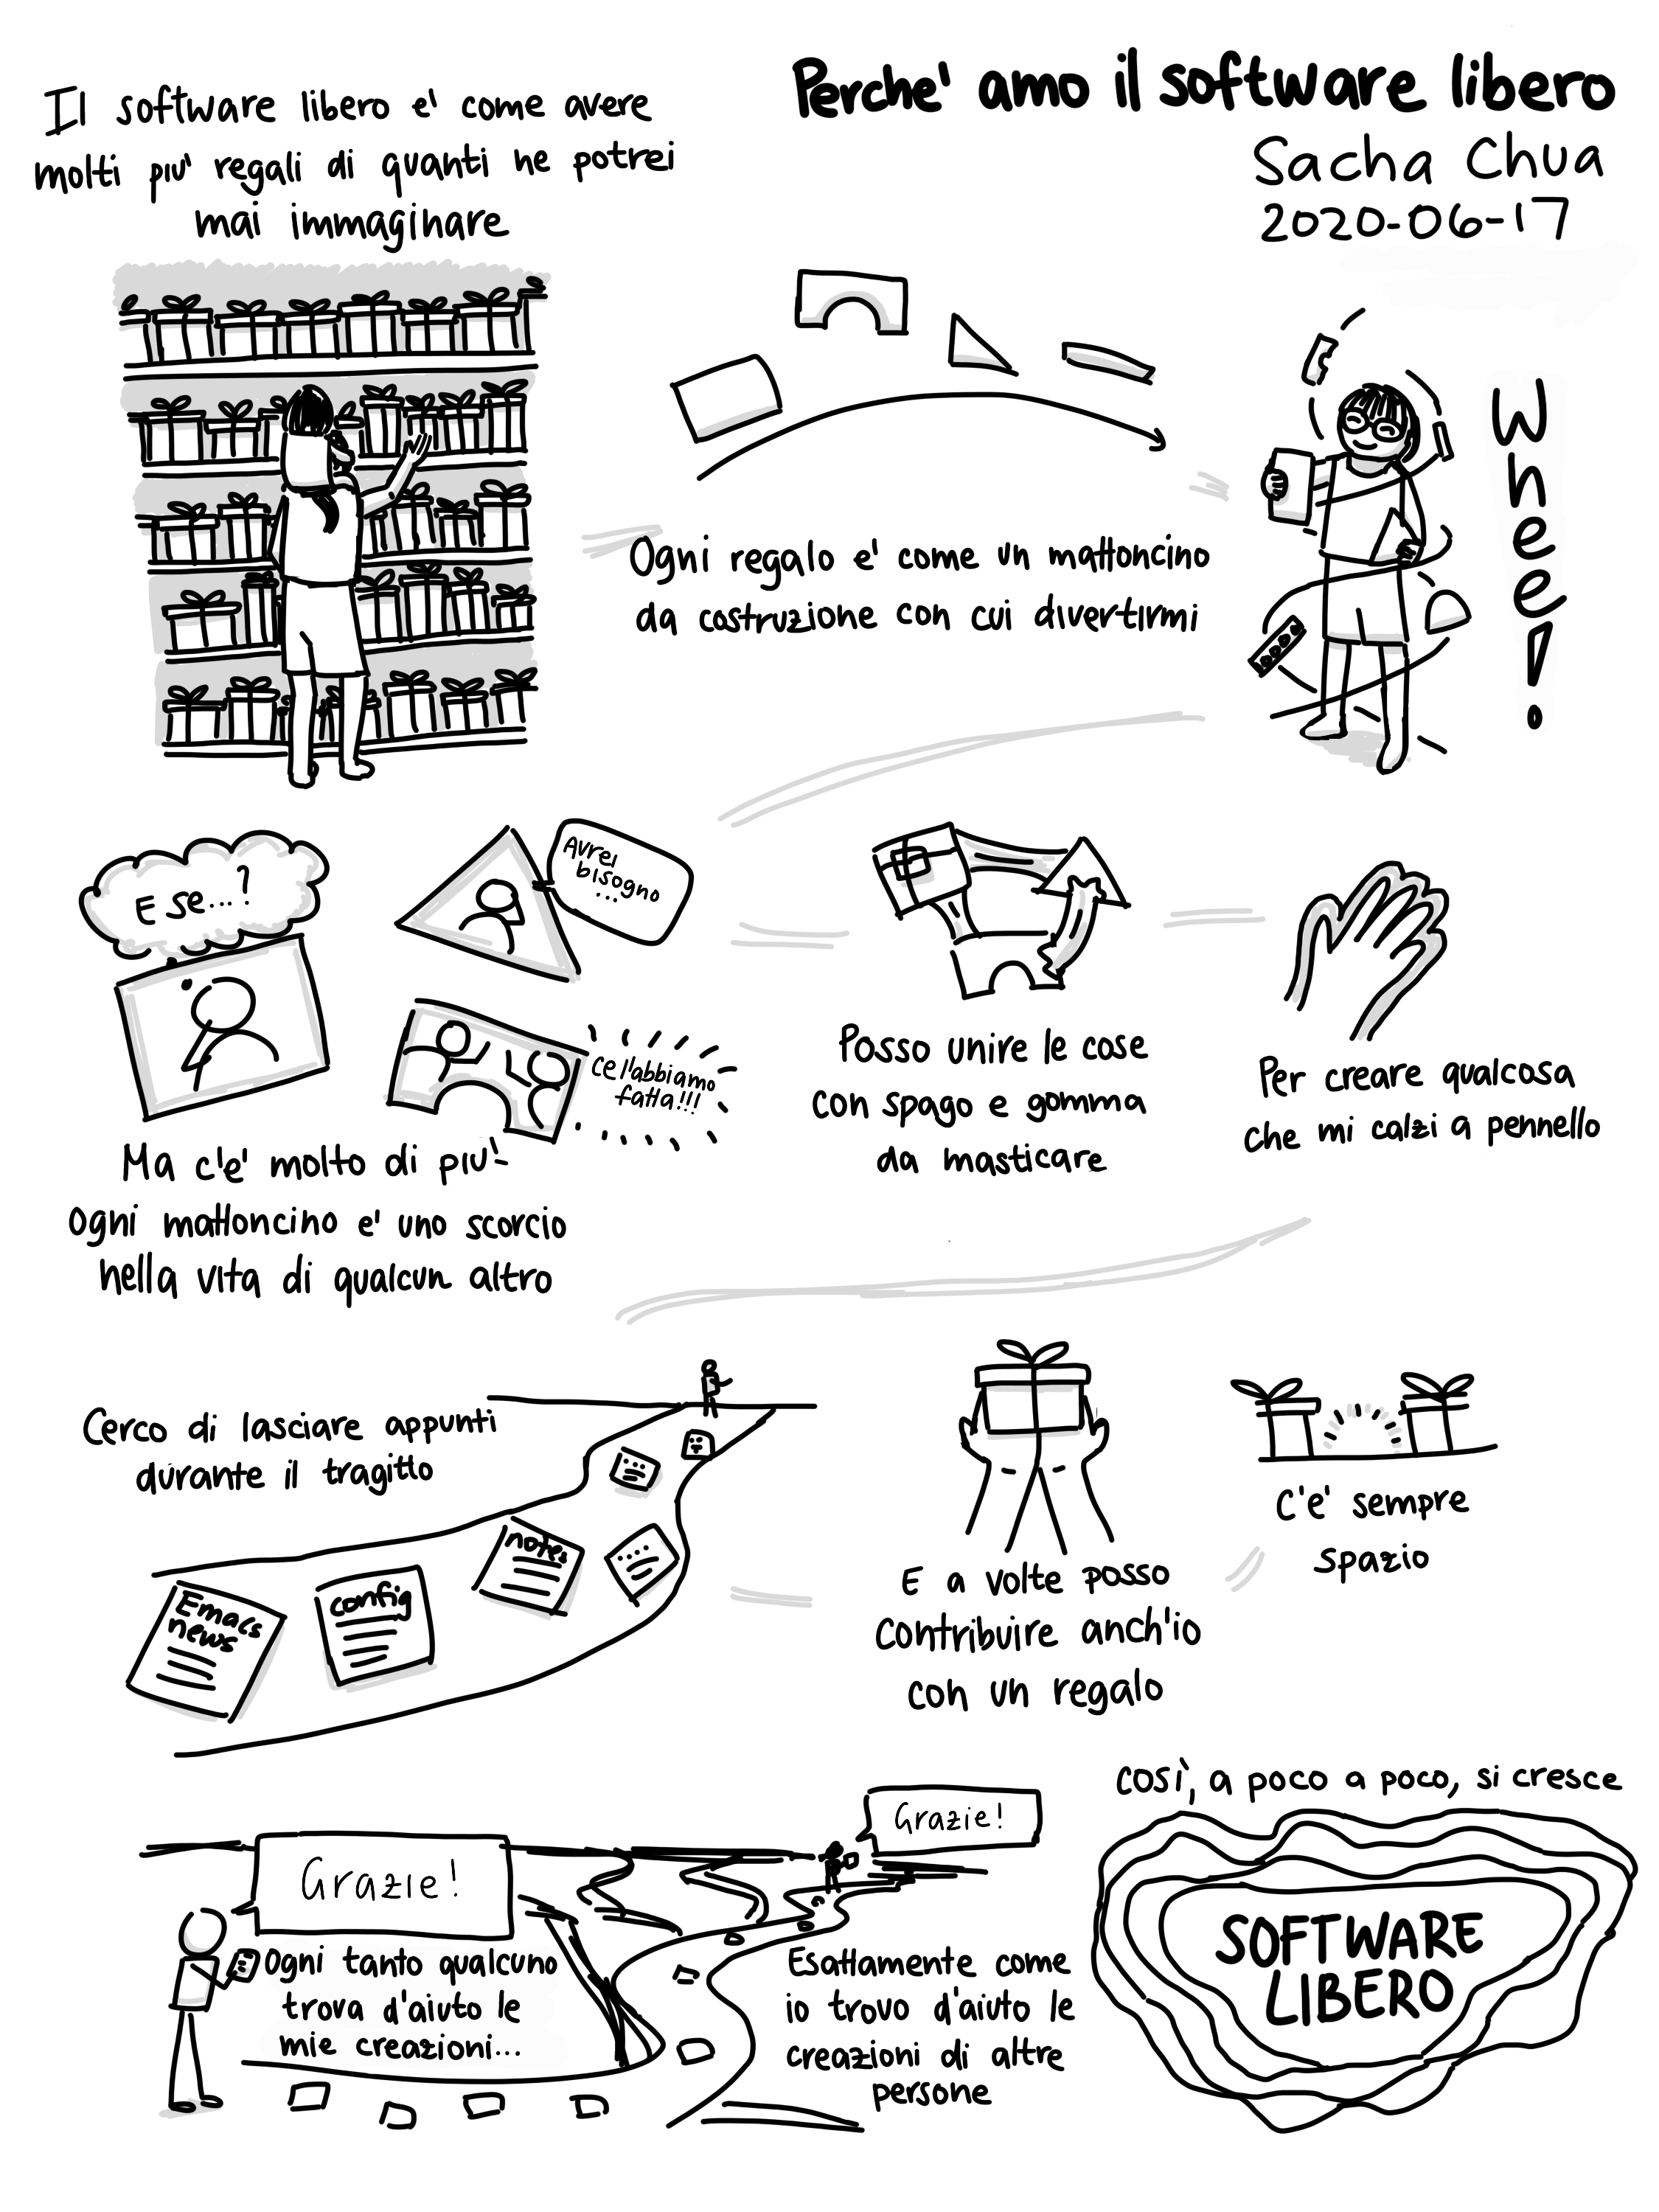 Perche' amo il software libero
Sacha Chua
2020-06-17
Il software libero e' come avere
molti piu' regali di quanti ne potrei
mai immaginare
Ogni regalo e' come un mattoncino
da costruzione con cui divertirmi
Whee!
E se...?
Avrei
bisogno
...
Ce l'abbiamo
fatta!!!
Ma c'e' molto di piu'-
ogni mattoncino e' uno scorcio
nella vita di qualcun altro
Posso unire le cose
con spago e gomma
da masticare
Per creare qualcosa
che mi calzi a pennello
Cerco di lasciare appunti
durante il tragitto
Emacs
news
config
notes
E a volte posso
contribuire anch'io
con un regalo
C'e' sempre
spazio
Grazie!
Ogni tanto qualcuno
trova d'aiuto le
mie creazioni...
Grazie!
Esattamente come
io trovo d'aiuto le
creazioni di altre
persone
così, a poco a poco, si cresce
SOFTWARE
LIBERO